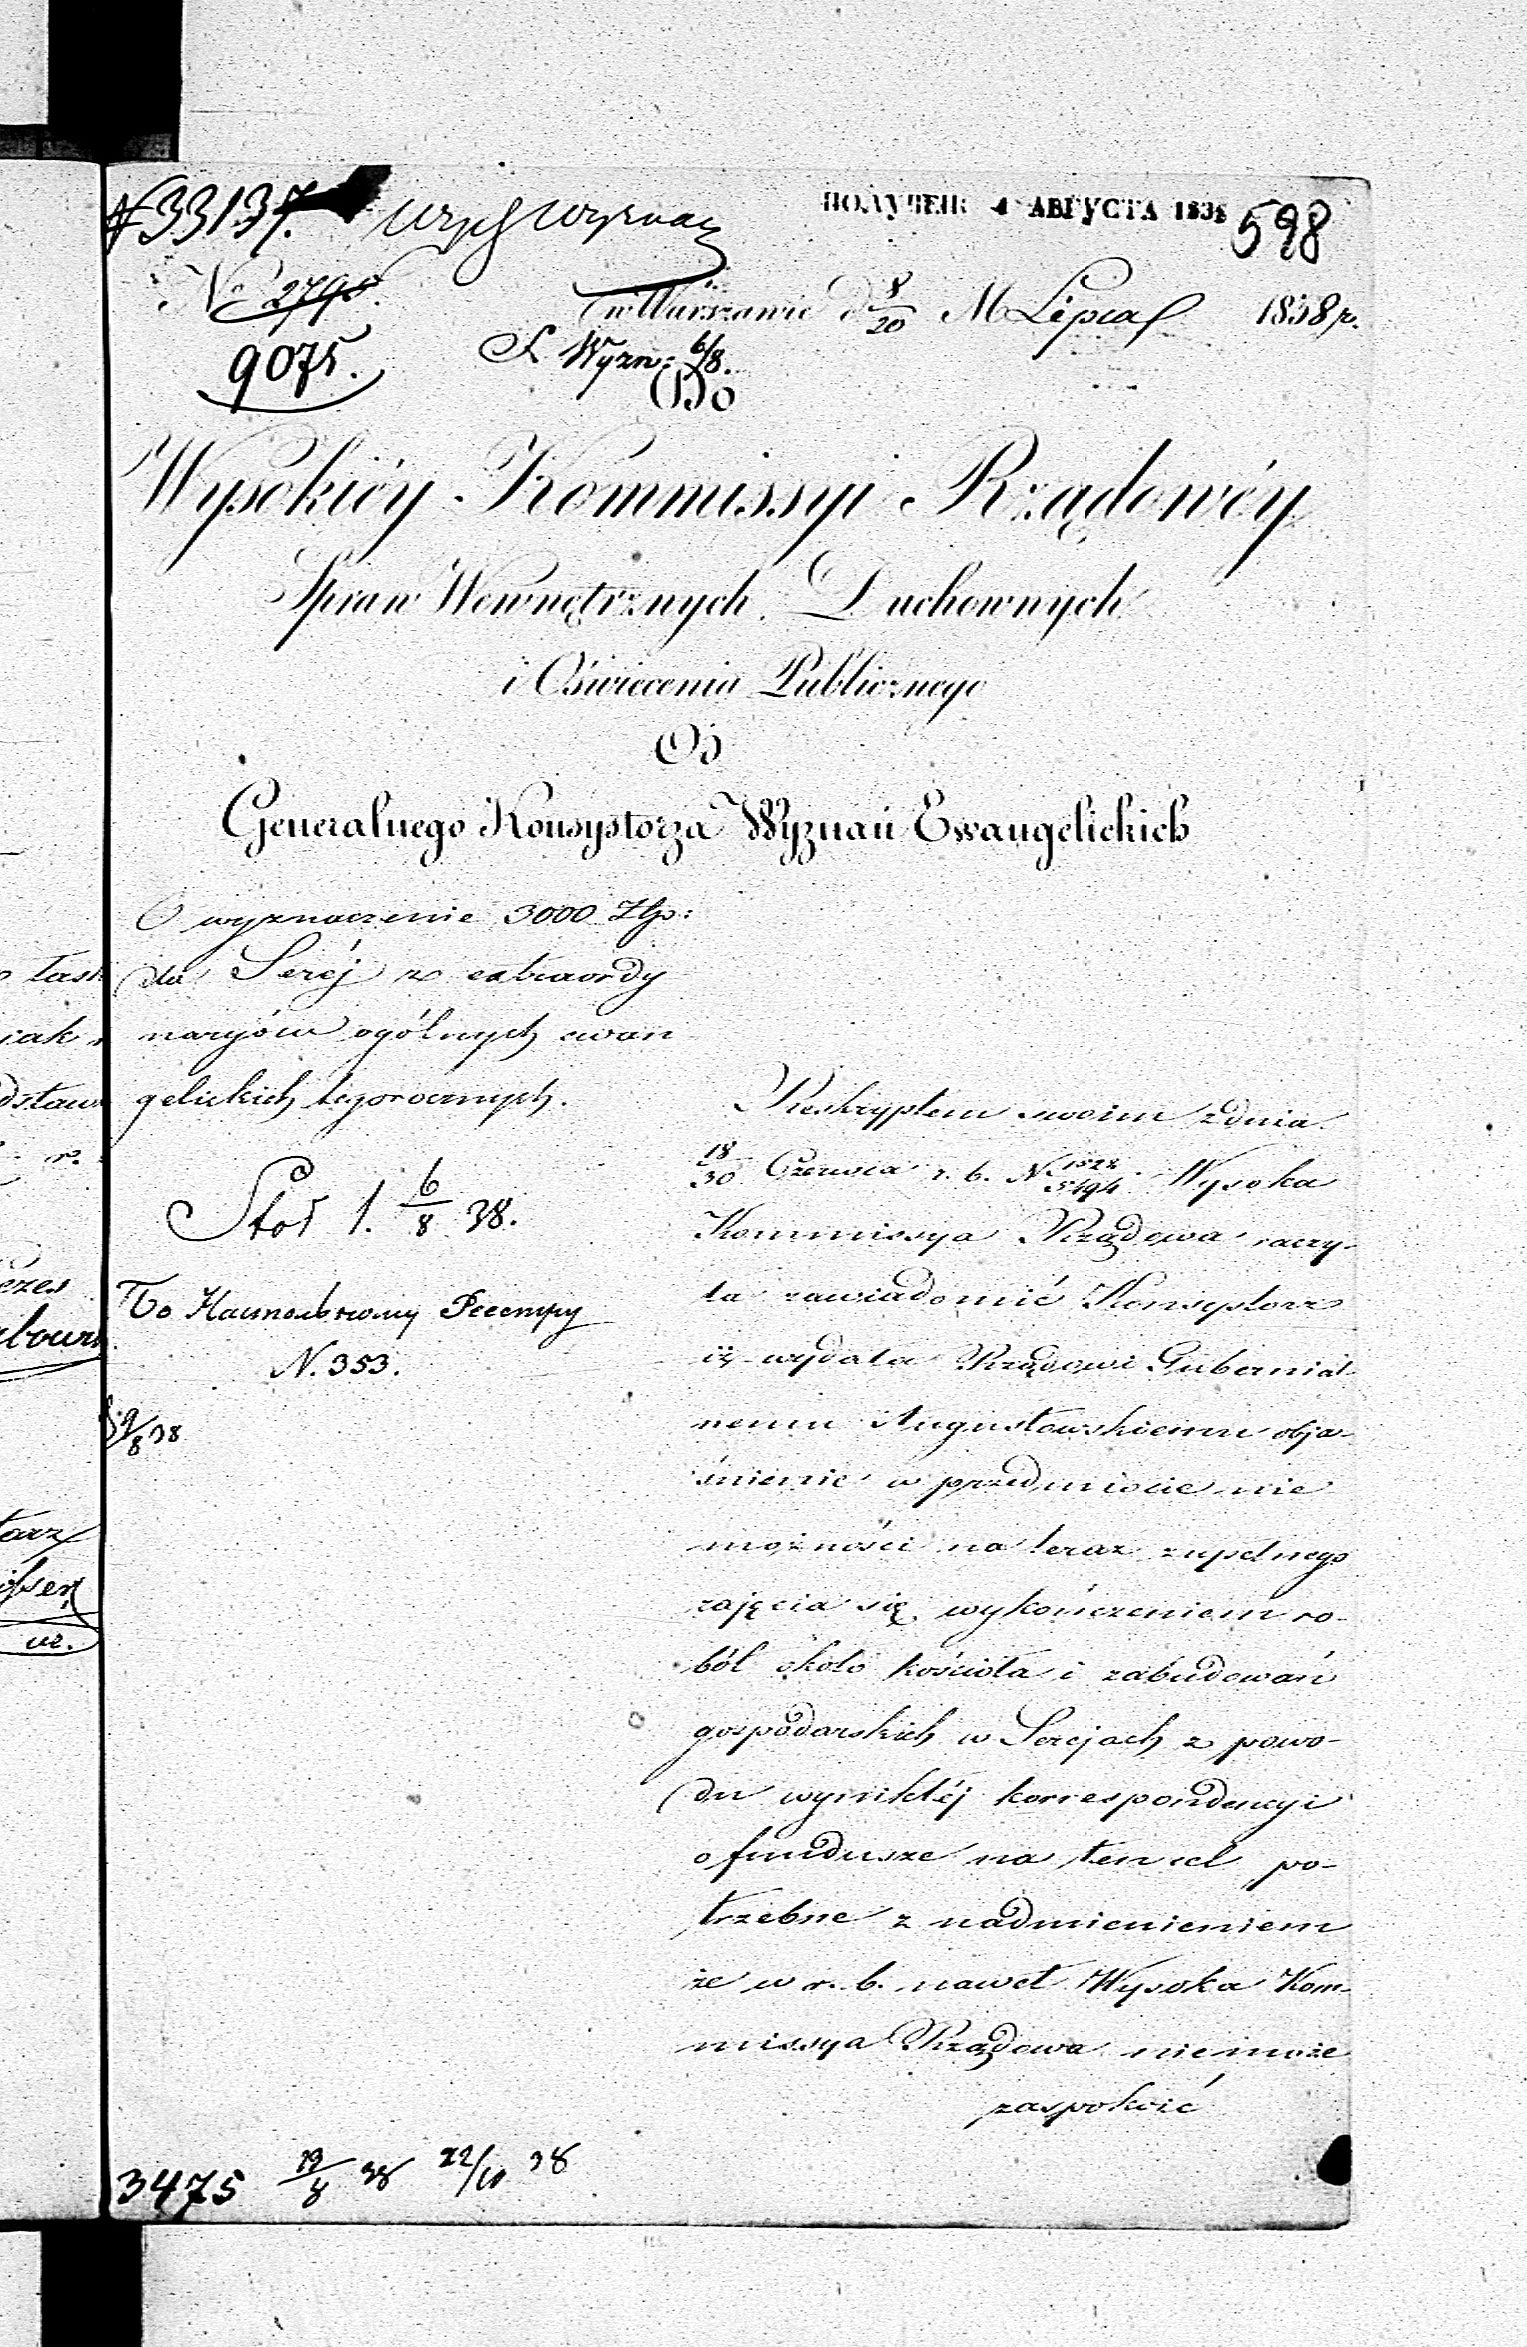 № 33137.
ПОЛУЧЕН 4 АВГУСТА 1838
598
No 2798
9075.
w Warszawie d 8/20 M Lipca 1838 r.
Wyzn: 6/8.
Do
Wysokiéy Kommissyi Rządowéy
Spraw Wewnętrznych Duchownych
i Oświecenia Publicznego
Od
Generalnego Konsystorza Wyznań Ewangelickich
O wyznaczenie 3000 Złp:
dla Seréj z extraordy
naryów ogólnych ewan
gelickich tegorocznych.
Stoł 1. 6/8 38.
По Настольному Реестру
N. 353.
9/8 38
Reskryptem swoim z dnia
18/30 Czerwca r. b. N 1522/5494 Wysoka
Kommissya Rządowa raczy-
ła zawiadomić Konsystorz
iż wydała Rządowi Gubernial-
nemu Augustowskiemu obja-
śnienie w przedmiocie nie
możności na teraz zupełnego
zajęcia się wykończeniem ro-
bót około kościoła i zabudowań
gospodarskich w Serejach z powo-
du wynikłéj korrespondencyi
o fundusze na ten cel po-
trzebne z nadmienieniem
że w r. b. nawet Wysoka Kom-
missya Rządowa niemoże
zaspokoić
3475 19/8 38 22/10 38